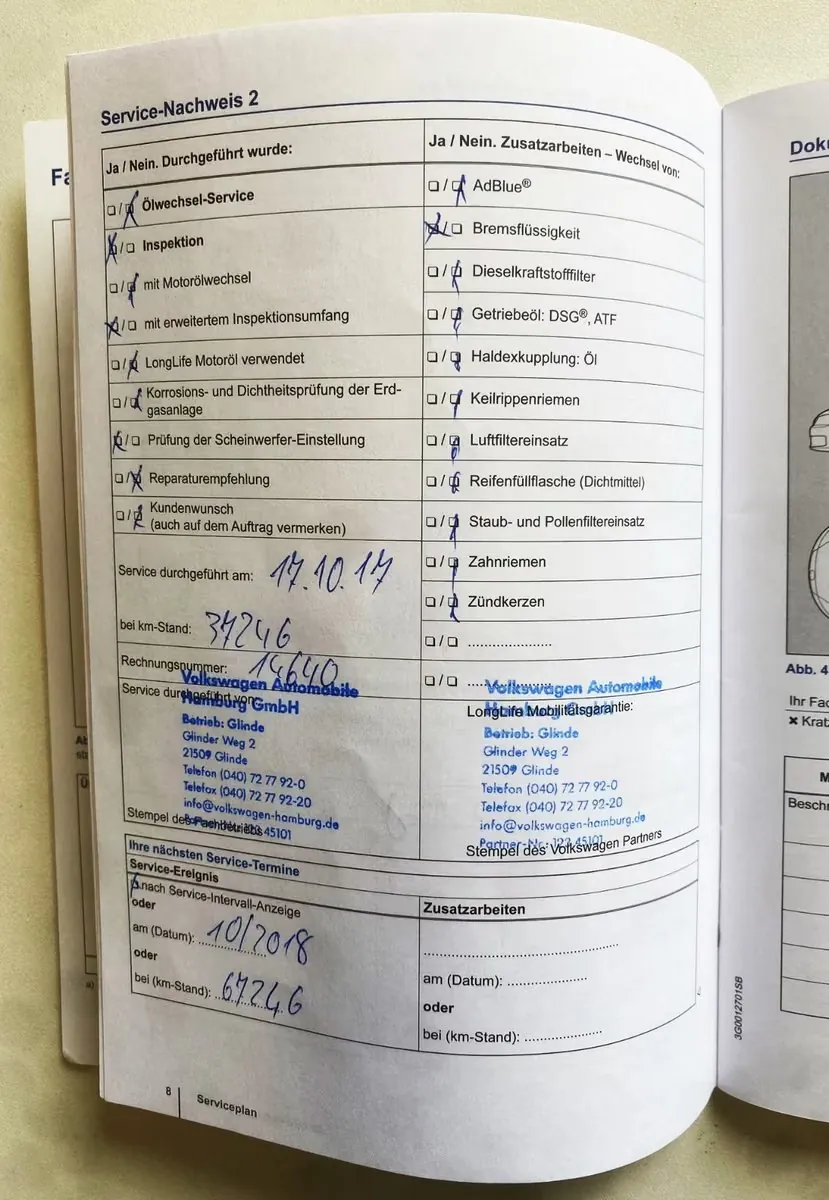 Service-Nachweis 2
Ja / Nein. Durchgeführt wurde:
Ölwechsel-Service
Inspektion
mit Motorölwechsel
mit erweitertem Inspektionsumfang
LongLife Motoröl verwendet
Korrosions- und Dichtheitsprüfung der Erd-
gasanlage
Prüfung der Scheinwerfer-Einstellung
Reparaturempfehlung
Kundenwunsch
(auch auf dem Auftrag vermerken)
Service durchgeführt am: 17.10.17
bei km-Stand: 37246
Rechnungsnummer: 14640
Service durchgeführt von:
Volkswagen Automobile
Hamburg GmbH
Betrieb: Glinde
Glinder Weg 2
21509 Glinde
Telefon (040) 72 77 92-0
Telefax (040) 72 77 92-20
info@volkswagen-hamburg.de
Partner-Nr.: 122 45101
Stempel des Fachbetriebs
Ja / Nein. Zusatzarbeiten – Wechsel von:
AdBlue®
Bremsflüssigkeit
Dieselkraftstofffilter
Getriebeöl: DSG®, ATF
Haldexkupplung: Öl
Keilrippenriemen
Luftfiltereinsatz
Reifenfüllflasche (Dichtmittel)
Staub- und Pollenfiltereinsatz
Zahnriemen
Zündkerzen
LongLife Mobilitätsgarantie:
Volkswagen Automobile
Hamburg GmbH
Betrieb: Glinde
Glinder Weg 2
21509 Glinde
Telefon (040) 72 77 92-0
Telefax (040) 72 77 92-20
info@volkswagen-hamburg.de
Partner-Nr.: 122 45101
Stempel des Volkswagen Partners
Ihre nächsten Service-Termine
Service-Ereignis
nach Service-Intervall-Anzeige
oder
am (Datum): 10/2018
oder
bei (km-Stand): 67246
Zusatzarbeiten
am (Datum):
oder
bei (km-Stand):
8
Serviceplan
3G0012701SB
Abb. 4